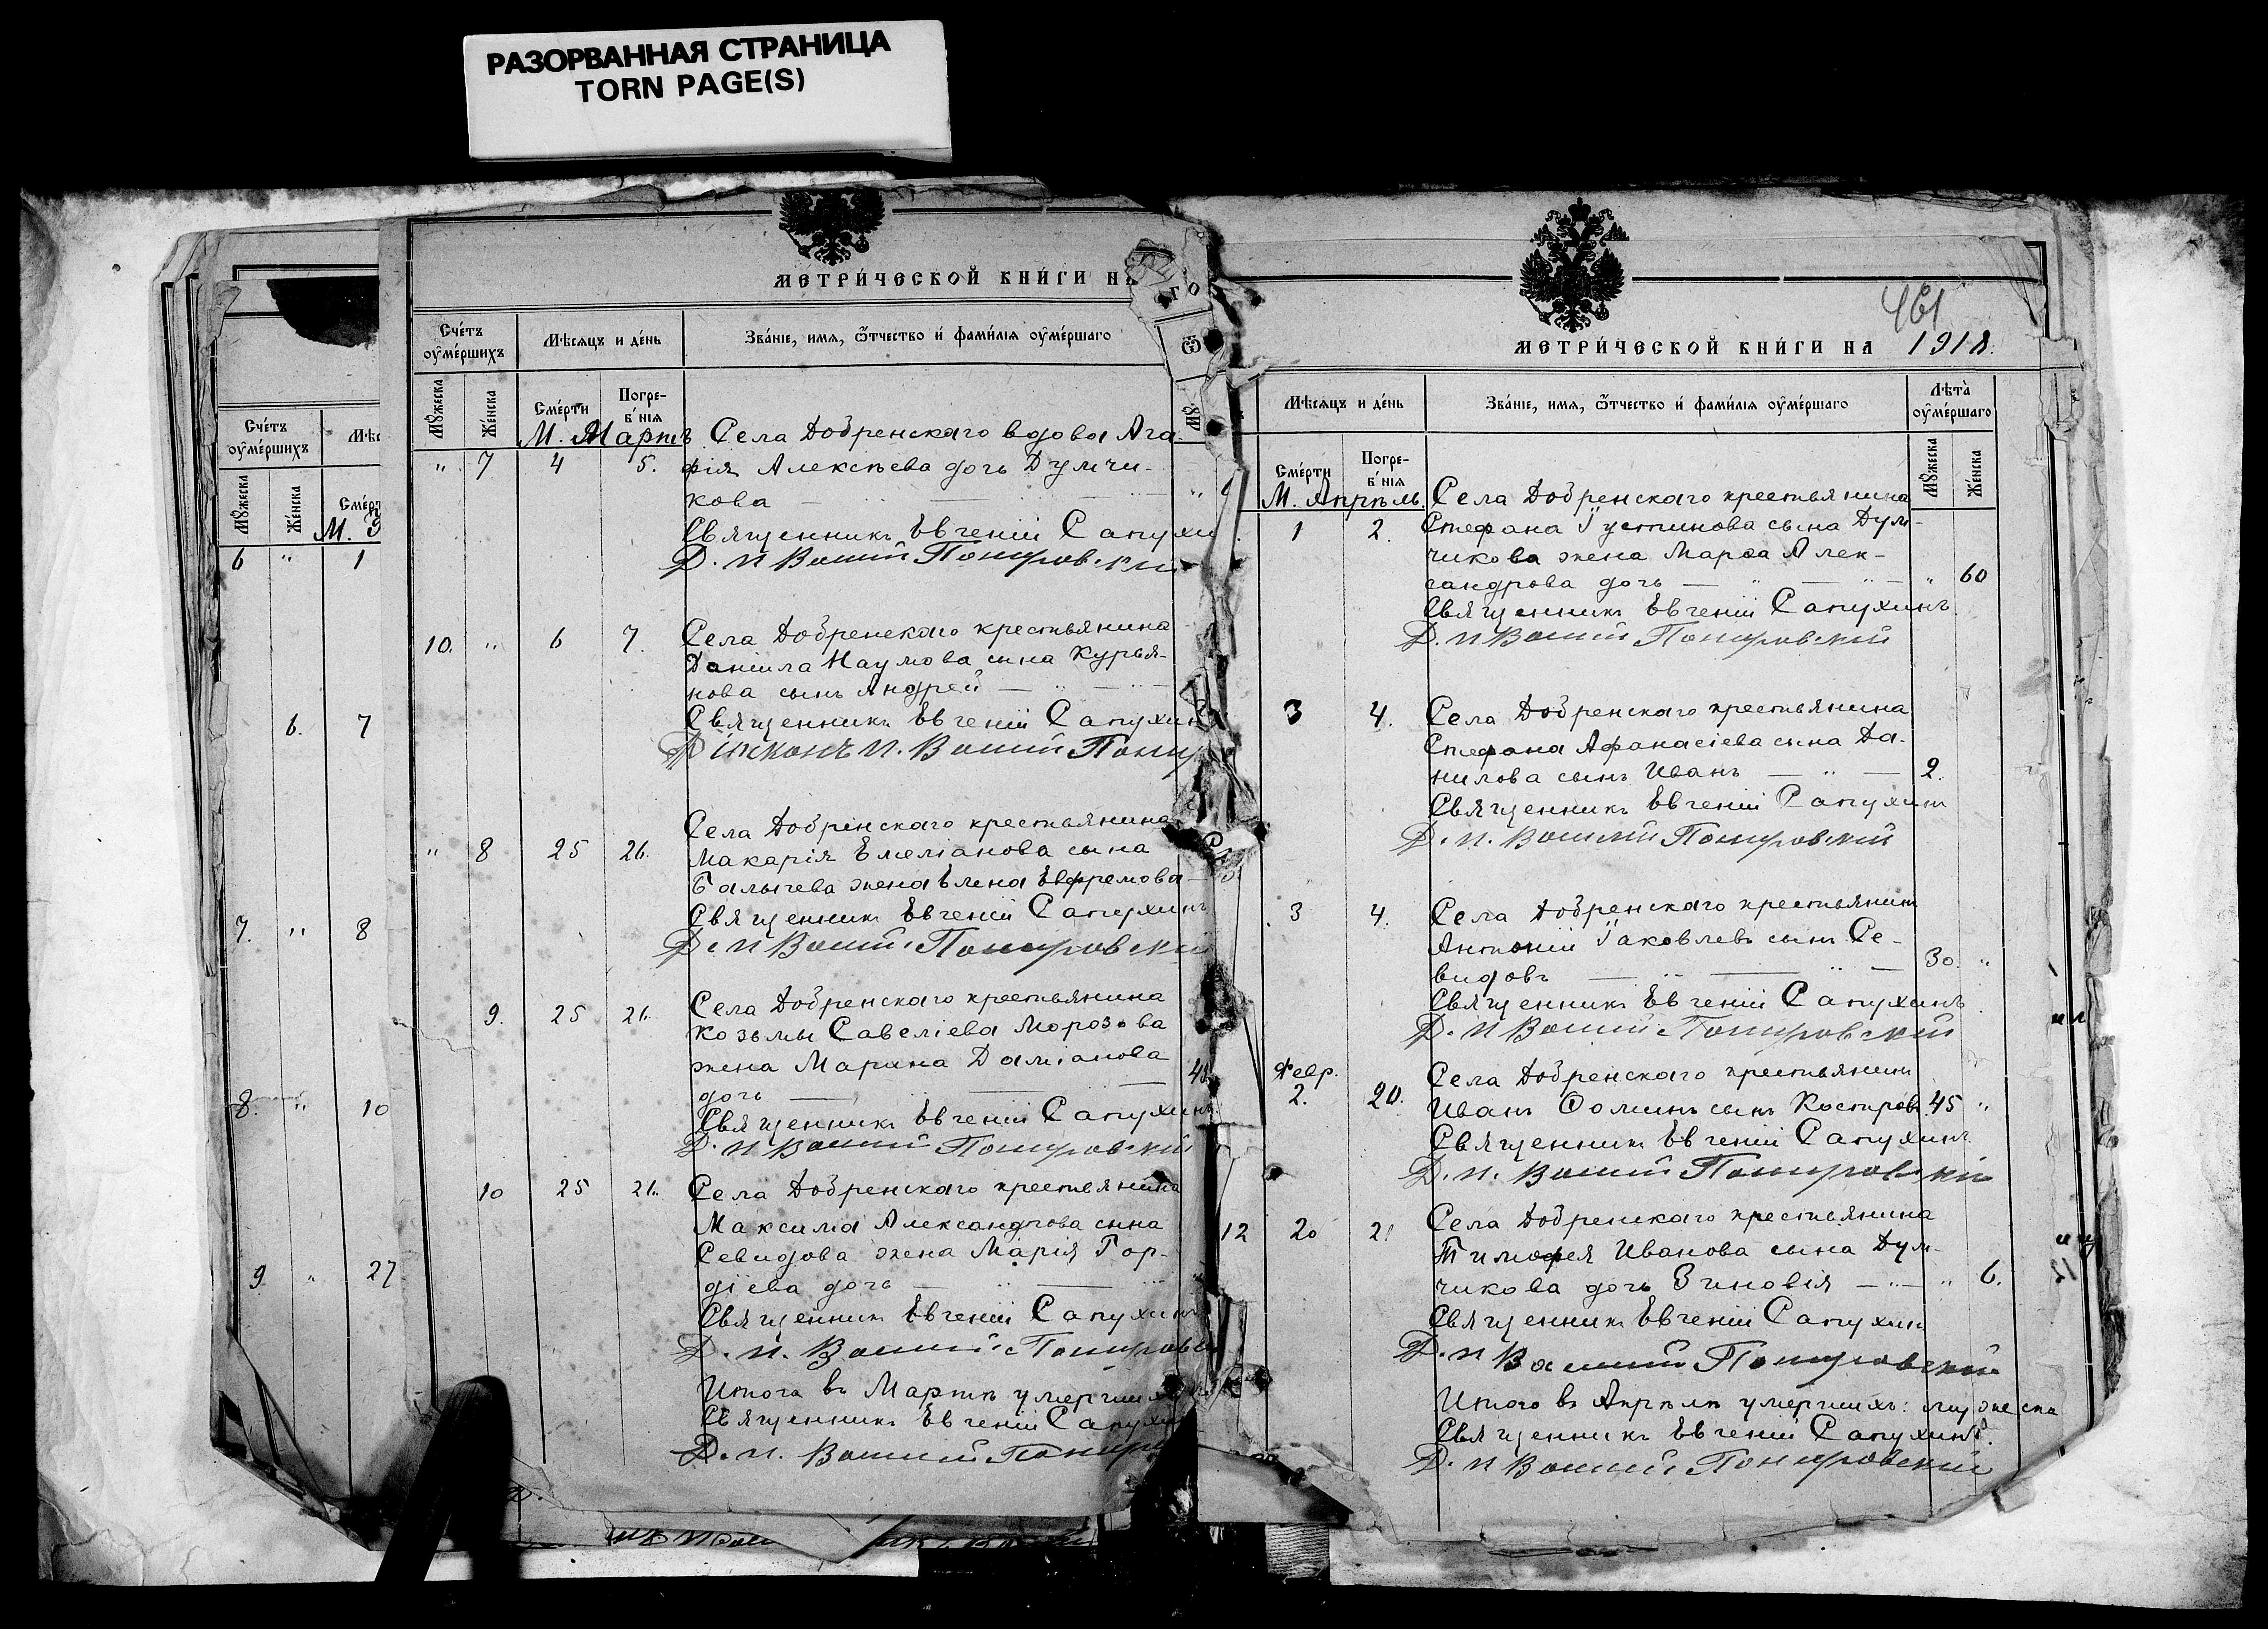 РАЗОРВАННАЯ СТРАНИЦА
TORN PAGE(S)
Счетъ оумершихъ
Мꙋжеска Женска
М.
6 " 1
6. 7
7. " 8
8. " 10
9 " 27
МЕТРИ́ЧЕСКОЙ КНИ́ГИ НА
Сче́тъ оу҆ме́ршихъ Мѣсяцъ и де́нь Зва́нїе, имя, ѿтчество и҆ фами́лїя оу҆ме́ршаго
Мꙋжеска Же́нска Сме́рти Погребе́нїя
М. Мартъ Села Добренскаго вдова Ага-
" 7 4 5. фія Алексѣева дочь Думчи-
кова
Священникъ Евгеній Сапухи
Д. и
10. " 6 7. Села Добренскаго крестьянина
Даніила Наумова сына Курья-
нова сынъ Андрей
Священникъ Евгеній Сапухинъ
Діаконъ и.
Села Добренскаго крестьянина
" 8 25 26. Макарія Емеліанова сына
Балычева жена Елена Евфремова
Священникъ Евгеній Сапухинъ
Д. и
9. 25 26. Села Добренскаго крестьянина
Козьмы Савеліева Морозова
жена Марина Даміанова
дочь
Священникъ Евгеній Сапухинъ
Д. и
10 25 26. Села Добренскаго крестьянина
Максима Александрова сына
Севидова жена Марія Гор-
діева дочь
Священникъ Евгеній Сапухинъ
Д. и.
Итого въ Мартѣ умершихъ
Священникъ Евгеній Сапухи
Д. и.
461
МЕТРИ́ЧЕСКОЙ КНИ́ГИ НА 1918.
Мѣсяцъ и де́нь Зва́нїе, имя, ѿтчество и҆ фами́лїя оу҆ме́ршаго Лѣта̀ оу҆ме́ршаго
Сме́рти Погребе́нїя Мꙋжеска Же́нска
М. Апрѣль. Села Добренскаго крестьянина
1 2. Стефана Іустинова сына Дум-
чикова жена Марѳа Алек-
сандрова дочь " 60
Священникъ Евгеній Сапухинъ
Д. и
3 4. Села Добренскаго крестьянина
Стефана Афанасіева сына Да-
нилова сынъ Иванъ 2.
Священникъ Евгеній Сапухинъ
Д. и.
3 4. Села Добренскаго крестьянинъ
Антоній Іаковлевъ сынъ Се-
видовъ 30. "
Священникъ Евгеній Сапухинъ
Д. и
Февр.
2. 20. Села Добренскаго крестьянинъ
Иванъ Ѳоминъ сынъ Костровъ 45 "
Священникъ Евгеній Сапухинъ
Д. и.
12 20 21 Села Добренскаго крестьянина
Тимофея Иванова сына Дум-
чикова дочь Зиновія " 6.
Священникъ Евгеній Сапухинъ
Д. и
Итого въ Апрѣлѣ умершихъ: мужеска
Священникъ Евгеній Сапухинъ.
Д. и